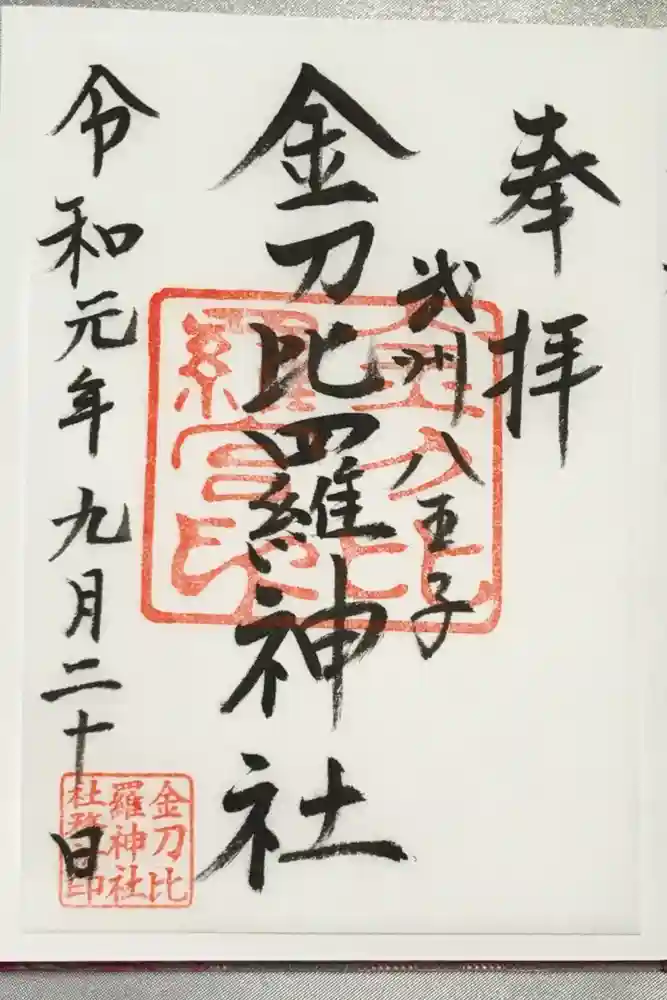 奉拝
武州八王子
金刀比羅神社
令和元年九月二十日
金刀比
羅宮印
金刀比
羅神社
社務之印